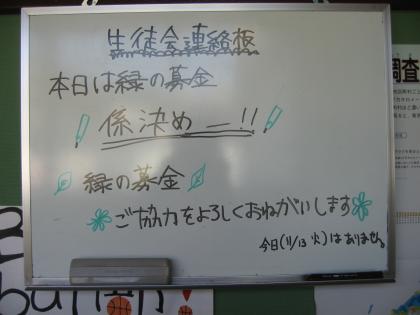 生徒会連絡板
本日は緑の募金
係決めー!!
緑の募金
ご協力をよろしくおねがいします
今日(11/13 火)はありません。
調査